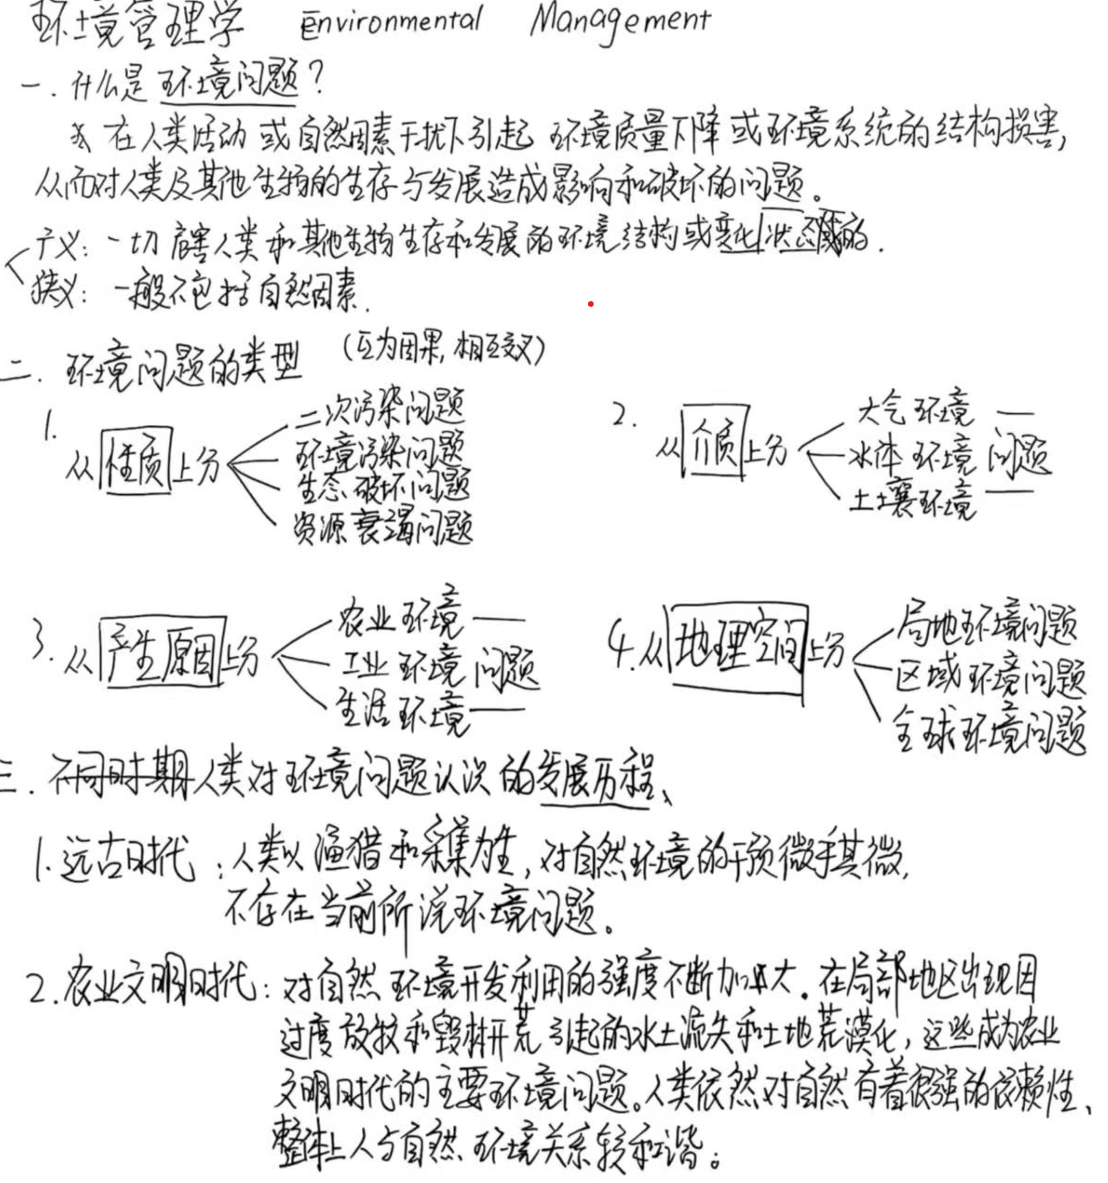 环境管理学 Environmental Management
一. 什么是环境问题?
在人类活动或自然因素干扰下引起环境质量下降或环境系统的结构损害,
从而对人类及其他生物的生存与发展造成影响和破坏的问题。
广义: 一切危害人类和其他生物生存和发展的环境结构或变化状态的.
狭义: 一般不包括自然因素.
二. 环境问题的类型 (互为因果,相互交叉)
1. 从性质上分
二次污染问题
环境污染问题
生态破坏问题
资源衰竭问题
2. 从介质上分
大气环境 —
水体环境问题
土壤环境 —
3. 从产生原因上分
农业环境 —
工业环境问题
生活环境 —
4. 从地理空间上分
局地环境问题
区域环境问题
全球环境问题
三. 不同时期人类对环境问题认识的发展历程、
1. 远古时代: 人类以渔猎和采集为生, 对自然环境的干预微乎其微,
不存在当前所说环境问题。
2. 农业文明时代: 对自然环境开发利用的强度不断加大. 在局部地区出现因
过度放牧和毁林开荒引起的水土流失和土地荒漠化, 这些成为农业
文明时代的主要环境问题。人类依然对自然有着很强的依赖性、
整体上人与自然环境关系较和谐。